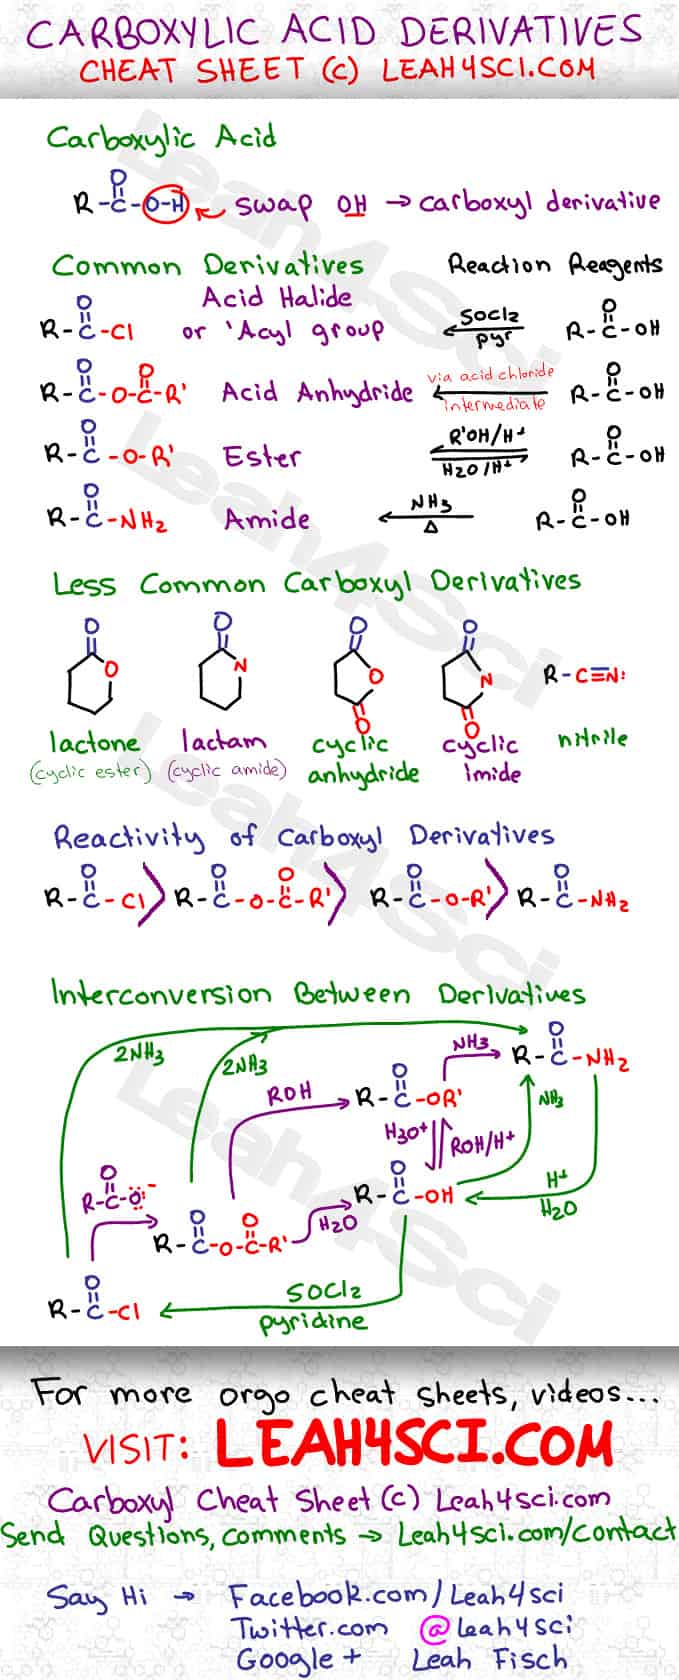 CARBOXYLIC ACID DERIVATIVES
CHEAT SHEET (C) LEAH4SCI.COM
Carboxylic Acid
R-C-O-H ← swap OH → carboxyl derivative
O
Common Derivatives Reaction Reagents
O
R-C-Cl
Acid Halide
or 'Acyl group
SOCl2
pyr
O
R-C-OH
O O
R-C-O-C-R'
Acid Anhydride
via acid chloride
intermediate
O
R-C-OH
O
R-C-O-R'
Ester
R'OH/H+
H2O/H+
O
R-C-OH
O
R-C-NH2
Amide
NH3
Δ
O
R-C-OH
Less Common Carboxyl Derivatives
O O O O
O N O N R-C≡N:
O O
lactone lactam cyclic cyclic nitrile
(cyclic ester) (cyclic amide) anhydride imide
Reactivity of Carboxyl Derivatives
O O O O O
R-C-Cl > R-C-O-C-R' > R-C-O-R' > R-C-NH2
Interconversion Between Derivatives
2NH3
2NH3
NH3
O
R-C-NH2
ROH
O
R-C-OR'
NH3
H3O+
ROH/H+
O
R-C-O:-
O O
R-C-O-C-R'
H2O
O
R-C-OH
H+
H2O
O
R-C-Cl
SOCl2
pyridine
For more orgo cheat sheets, videos...
VISIT: LEAH4SCI.COM
Carboxyl Cheat Sheet (C) Leah4sci.com
Send Questions, comments → Leah4sci.com/contact
Say Hi → Facebook.com/Leah4sci
Twitter.com @leah4sci
Google+ Leah Fisch
Leah4Sci
Leah4Sci
Leah4Sci
Leah4Sci